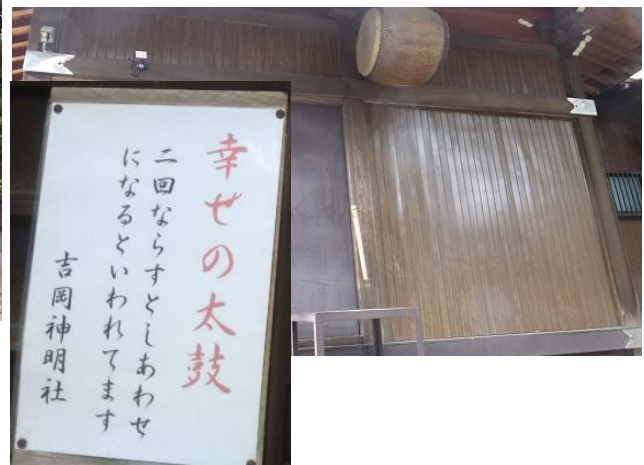 幸せの太鼓
二回ならすとしあわせ
になるといわれてます
吉岡神明社